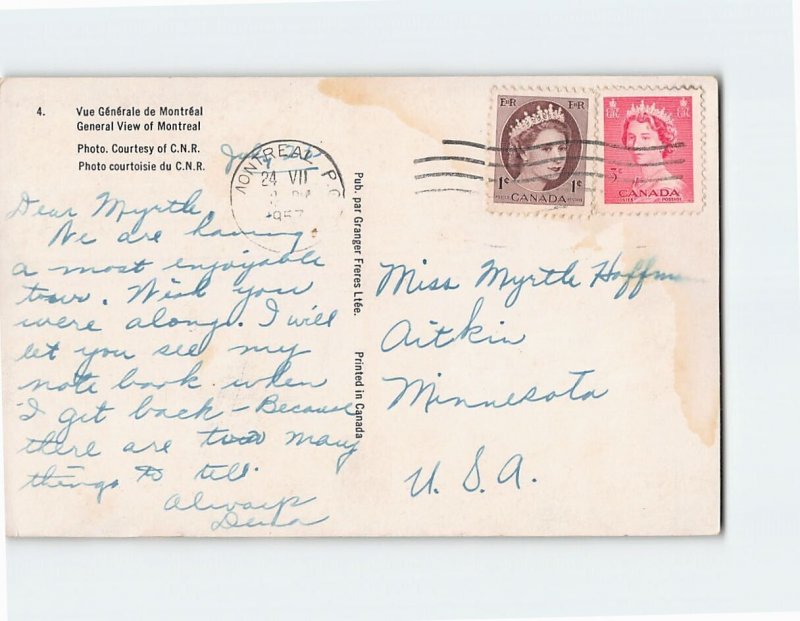 4. Vue Générale de Montréal
General View of Montreal
Photo. Courtesy of C.N.R.
Photo courtoisie du C.N.R.
July
MONTREAL P.Q.
24 VII
1957
E R E R
1¢ 1¢
CANADA
POSTES POSTAGE
E R E R
3¢
CANADA
POSTES POSTAGE
Dear Myrtle,
We are having
a most enjoyable
tour. Wish you
were along. I will
let you see my
note book when
I get back - Because
there are too many
things to tell.
Always
Dena
Pub. par Granger Freres Ltée. Printed in Canada
Miss Myrtle Hoffman
Aitkin
Minnesota
U. S. A.